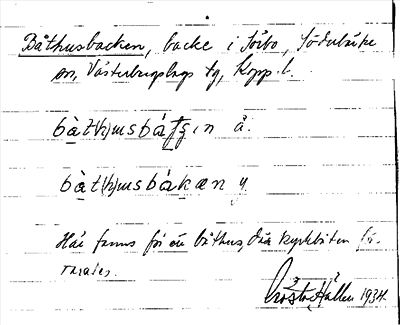 Båthusbacken, backe i Sörbo, Söderbärke
sn, Västerbergslags tg, Kopp. l.
bàt(h)usbáʃʃin ä.
bàt(h)usbákæn y.
Här fanns för en båthus, där kyrkbåten för-
varades.
Gösta Hallén 1934.